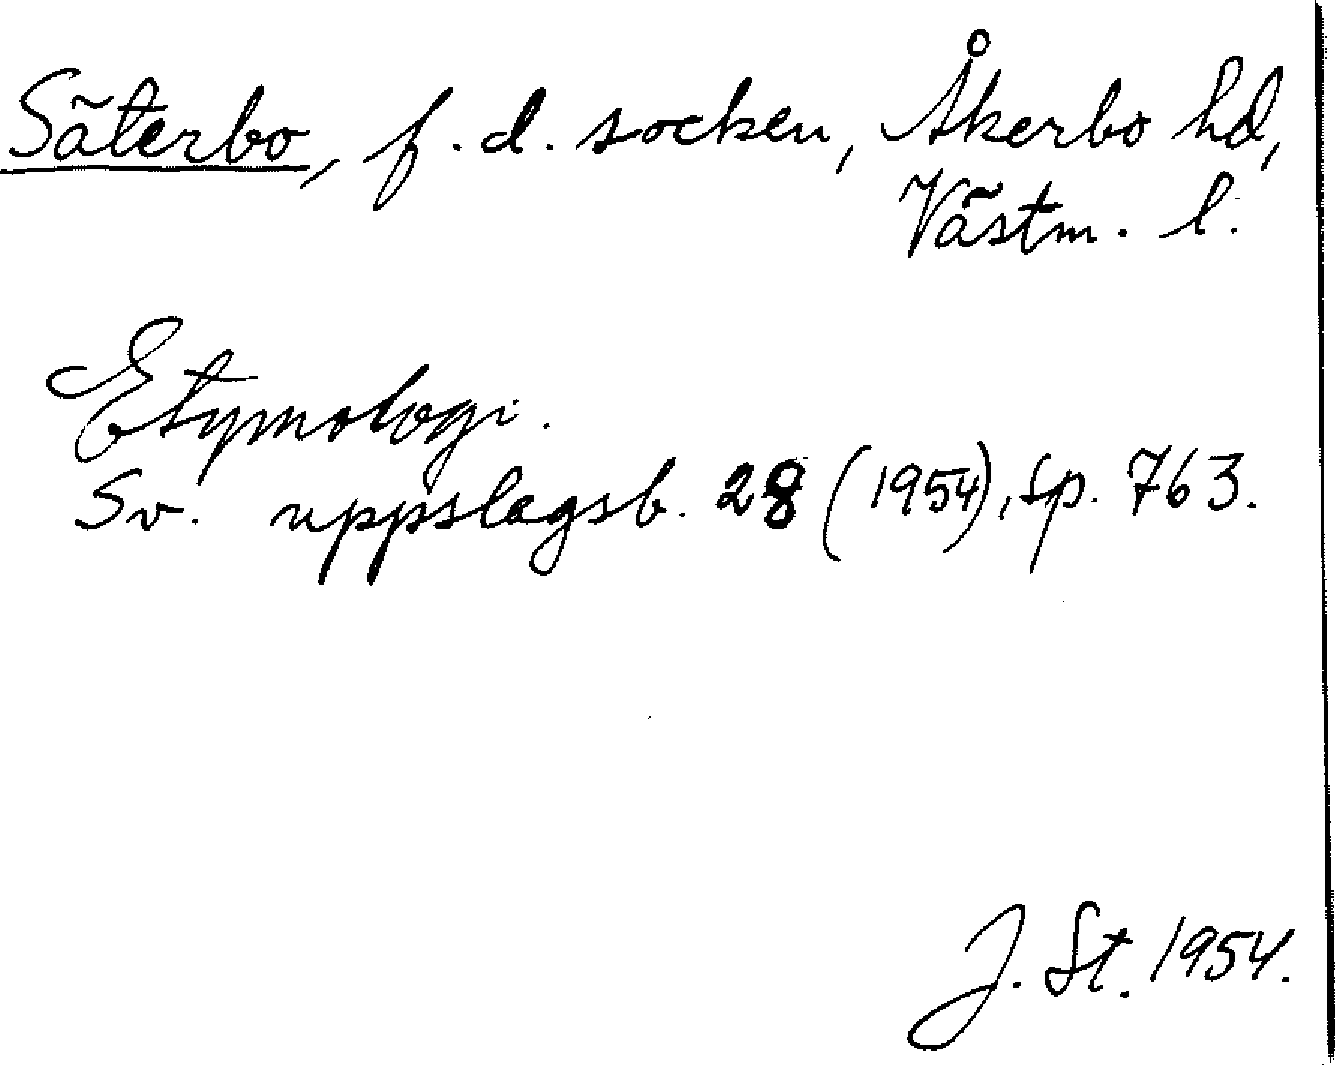 Säterbo, f. d. socken, Åkerbo hd,
Västm. l.
Etymologi.
Sv. uppslagsb. 28 (1954), sp. 763.
J. St. 1954.